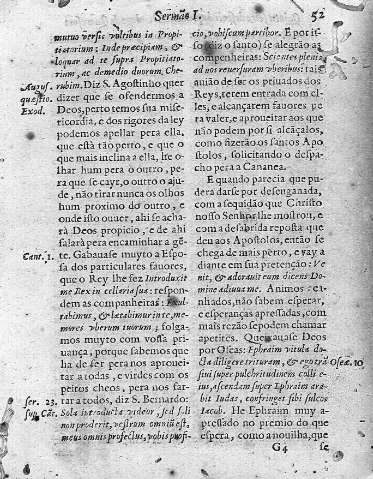 Sermão I. 52
mutuo versis vultibus in Propi-
tiatorium: Inde præcipiam, &
loquar ad te supra Propitiato-
rium, ac de medio duorum Che-
rubim. Diz S. Agostinho quer
dizer que se ofendermos a
Deos, perto temos sua mise-
ricordia, e dos rigores da ley
podemos apellar pera ella.
que està tão perto, e que o
que mais inclina a ella, he o-
lhar hum pera o outro, pe-
ra que se cayr, o outro o aju-
de, não tirar nunca os olhos
hum proximo do outro, e
onde isto ouuer, ahi se acha-
rà Deos propicio, e de ahi
falarà pera encaminhar a gẽ-
te. Gabauase muyto a Espo-
sa dos particulares fauores,
que o Rey lhe fez Introduxit
me Rex in cellaria sua: respon-
dem as companheiras: Exul-
tabimus, & lætabimur in te, me-
mores vberum tuorum; folga-
mos muyto com vossa pri-
uança, porque sabemos que
ha de ser pera nos aprouei-
tar a todas, e virdes com os
peitos cheos, pera nos far-
tar a todos, diz S. Bernardo:
Sola introducta videor, sed soli
non proderit, vestrum omniũ est,
meus omnis profectus, vobis prof-
Augus.
quæstio.
Exod.
Cant. 1.
ser. 23.
sup. Cãt.
cio, vobiscum partibor. E por is-
so (diz o santo) se alegrão as
companheiras: Scientes plenis
ad nos reuersuram vberibus: tras
auião de ser os priuados dos
Reys, terem entrada com el-
les, e alcançarem fauores pe
ra valer, e aproueitar aos que
não podem por si alcãçalos,
como fizerão os santos Apo
stolos, solicitando o despa-
cho pera a Cananea.
E quando parecia que pu-
dera darse por desenganada,
com a sequidão que Christo
nosso Senhor lhe mostrou, e
com a desabrida reposta que
deu aos Apostolos, então se
chega de mais perto, e vay a
diante em sua pretenção: Ve
nit, & adorauit eum dicens Do
mine adiuua me. Animos
nhados, não sabem esperar,
e esperanças apressadas, com
mais rezão se podem chamar
apetites. Queixauase Deos
por Oseas: Ephraim vitula do-
cta diligere trituram, & ego trã-
siui super pulchritudinem colli e-
ius, ascendam super Ephraim ara-
bit Iudas, confringet sibi sulcos
Iacob. He Ephraim muy a-
pressado no premio do que
espera, como a nouilha, que
Oseæ. 10
G4 se